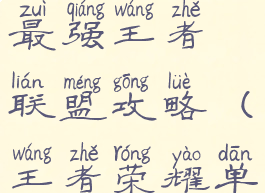 zuì qiáng wáng zhě
最强王者
lián méng gōng lüè
联盟攻略（
wáng zhě róng yào dān
王者荣耀单